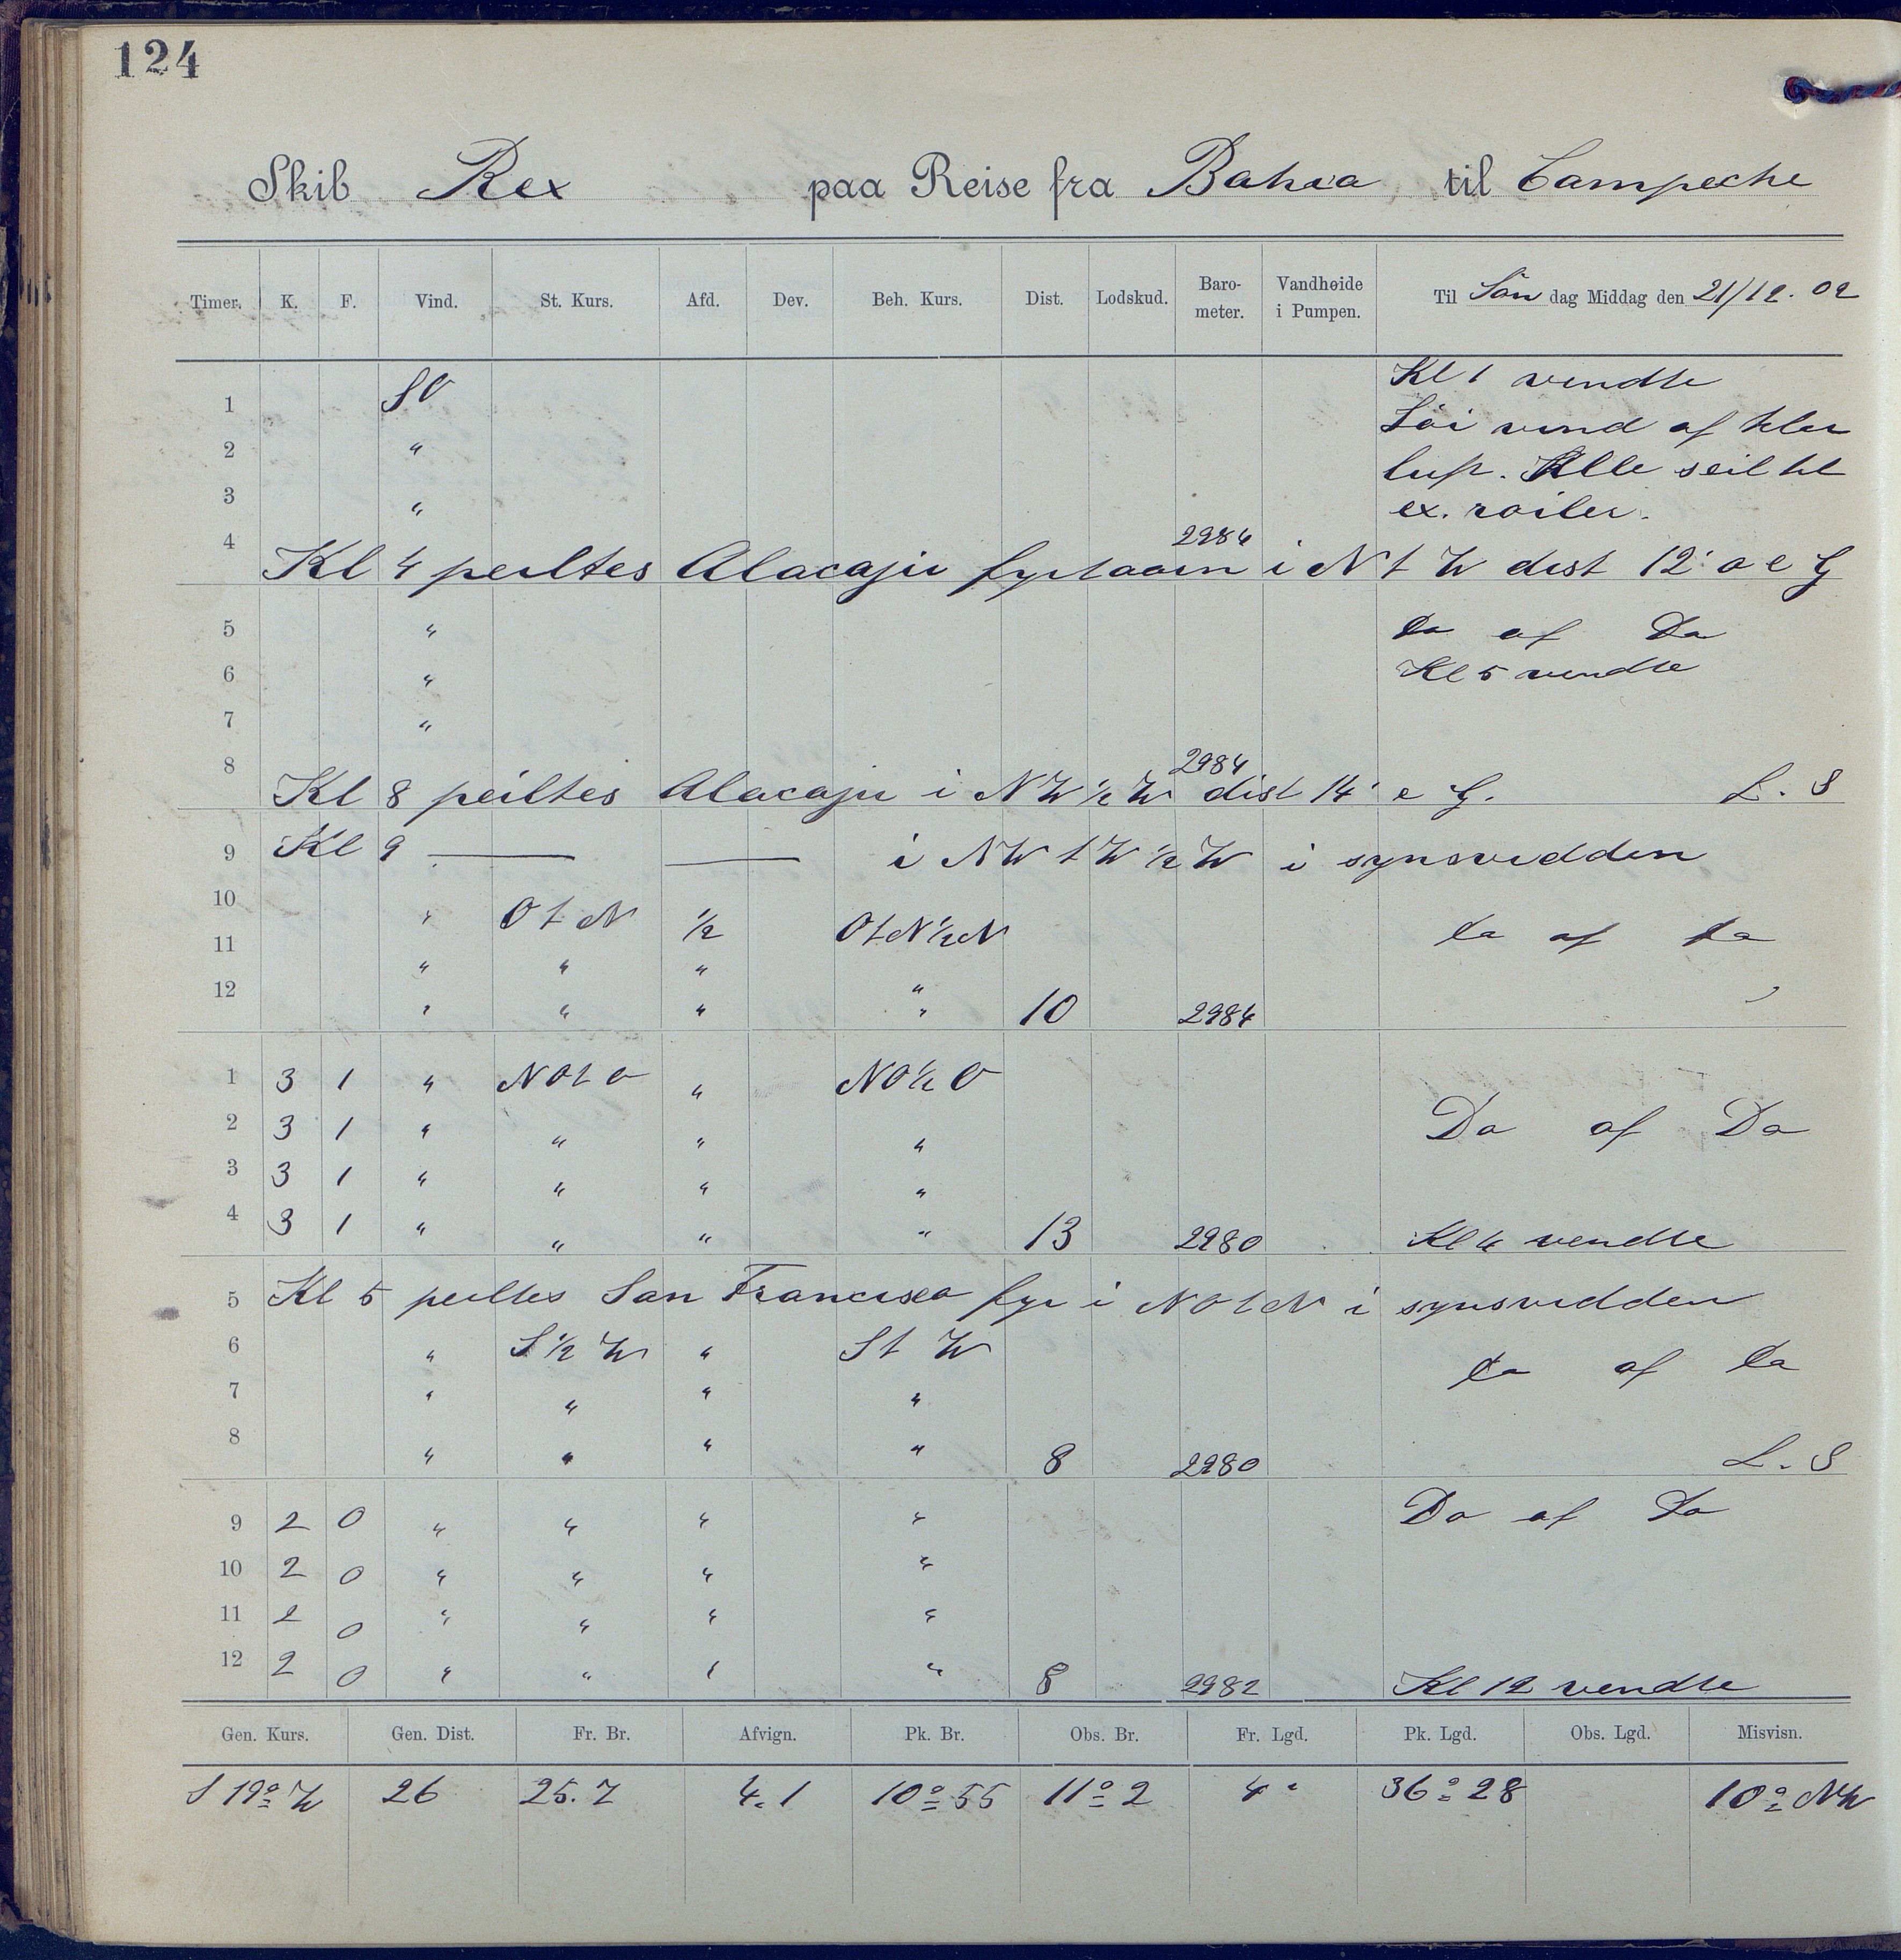 124
Skib Rex paa Reise fra Bahia til Campeche
Timer. K. F. Vind. St. Kurs. Afd. Dev. Beh. Kurs. Dist. Lodskud. Baro-meter. Vandhøide i Pumpen. Til Søn dag Middag den 21/12. 02
Kl 1 vendte
1 SO
Löi vind af klar
2 "
luft. Alle seil til
3 "
ex. röiler.
4 2984
Kl 4 peiltes Alacaju fyrtaarn i N t W dist 12' a e G
5 " Do af Do
6 " Kl 5 vendte
7 "
8 2984
Kl 8 peiltes Alacaju i NW ½ W dist 14' e G. L. S
9 Kl 9 — — i NW t W ½ W i synsvidden
10 " O t N ½ O t N ½ N Da af Da
11 " " " "
12 " " " " 10 2984
1 3 1 " NO t O " NO ½ O
2 3 1 " " " " Do af Do
3 3 1 " " " "
4 3 1 " " " " 13 2980 Kl 4 vendte
5 Kl 5 peiltes San Francisco fyr i NO t N i synsvidden
6 " S ½ W " S t W Da af Da
7 " " " "
8 " " " " 8 2980 L. S
9 2 0 " " " " Do af Do
10 2 0 " " " "
11 2 0 " " " "
12 2 0 " " 1 " 8 2982 Kl 12 vendte
Gen. Kurs. Gen. Dist. Fr. Br. Afvign. Pk. Br. Obs. Br. Fr. Lgd. Pk. Lgd. Obs. Lgd. Misvisn.
S 19° W 26 25.7 4.1 10° 55 11° 2 4' 36° 28 10° NW